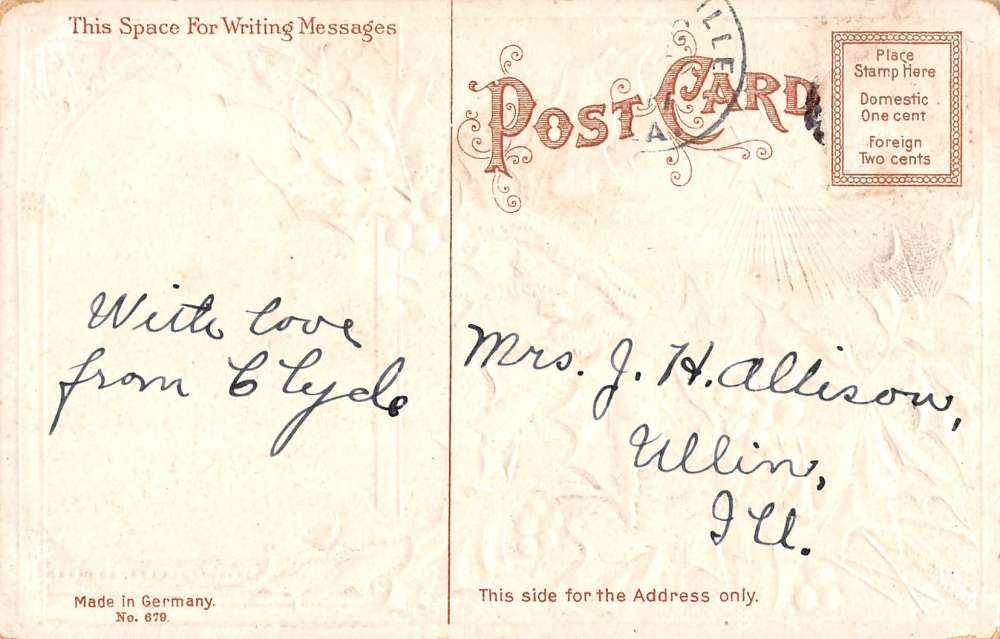 This Space For Writing Messages
POST CARD
ILLE
A.
Place
Stamp Here
Domestic
One cent
Foreign
Two cents
With love
from Clyde
Mrs. J. H. Allison,
Ullin,
Ill.
Made in Germany.
No. 679.
This side for the Address only.